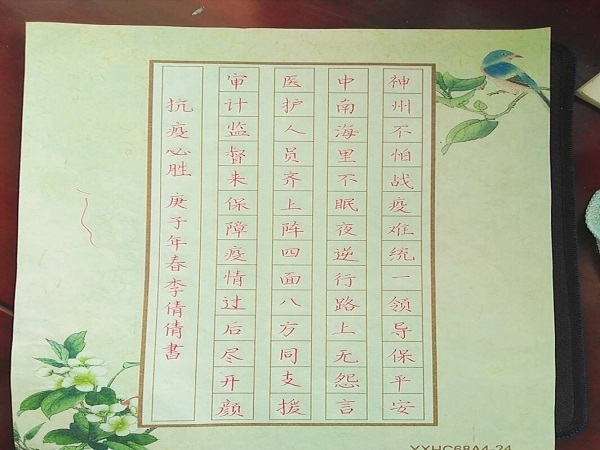 神州不怕战疫难统一领导保平安
中南海里不眠夜逆行路上无怨言
医护人员齐上阵四面八方同支援
审计监督来保障疫情过后尽开颜
抗疫必胜 庚子年春李倩倩書
YYHC68A4-24